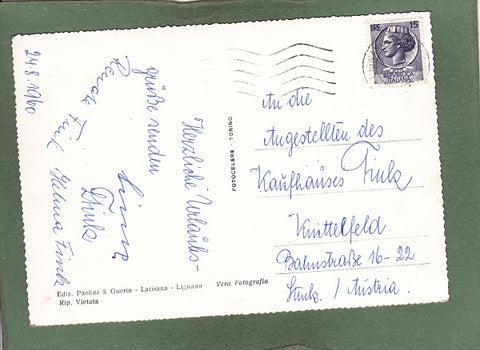 24.8.1960
Herzliche Urlaubs-
grüße senden
Fink
Helma Fink
Ediz. Paolini & Guerin - Latisana - Lignano
Rip. Vietata
Vera Fotografia
FOTOCELERE TORINO
LIRE 15
REPUBBLICA
ITALIANA
An die
Angestellten des
Kaufhauses Fink
Knittelfeld
Bahnstraße 16-22
Stmk. / Austria.